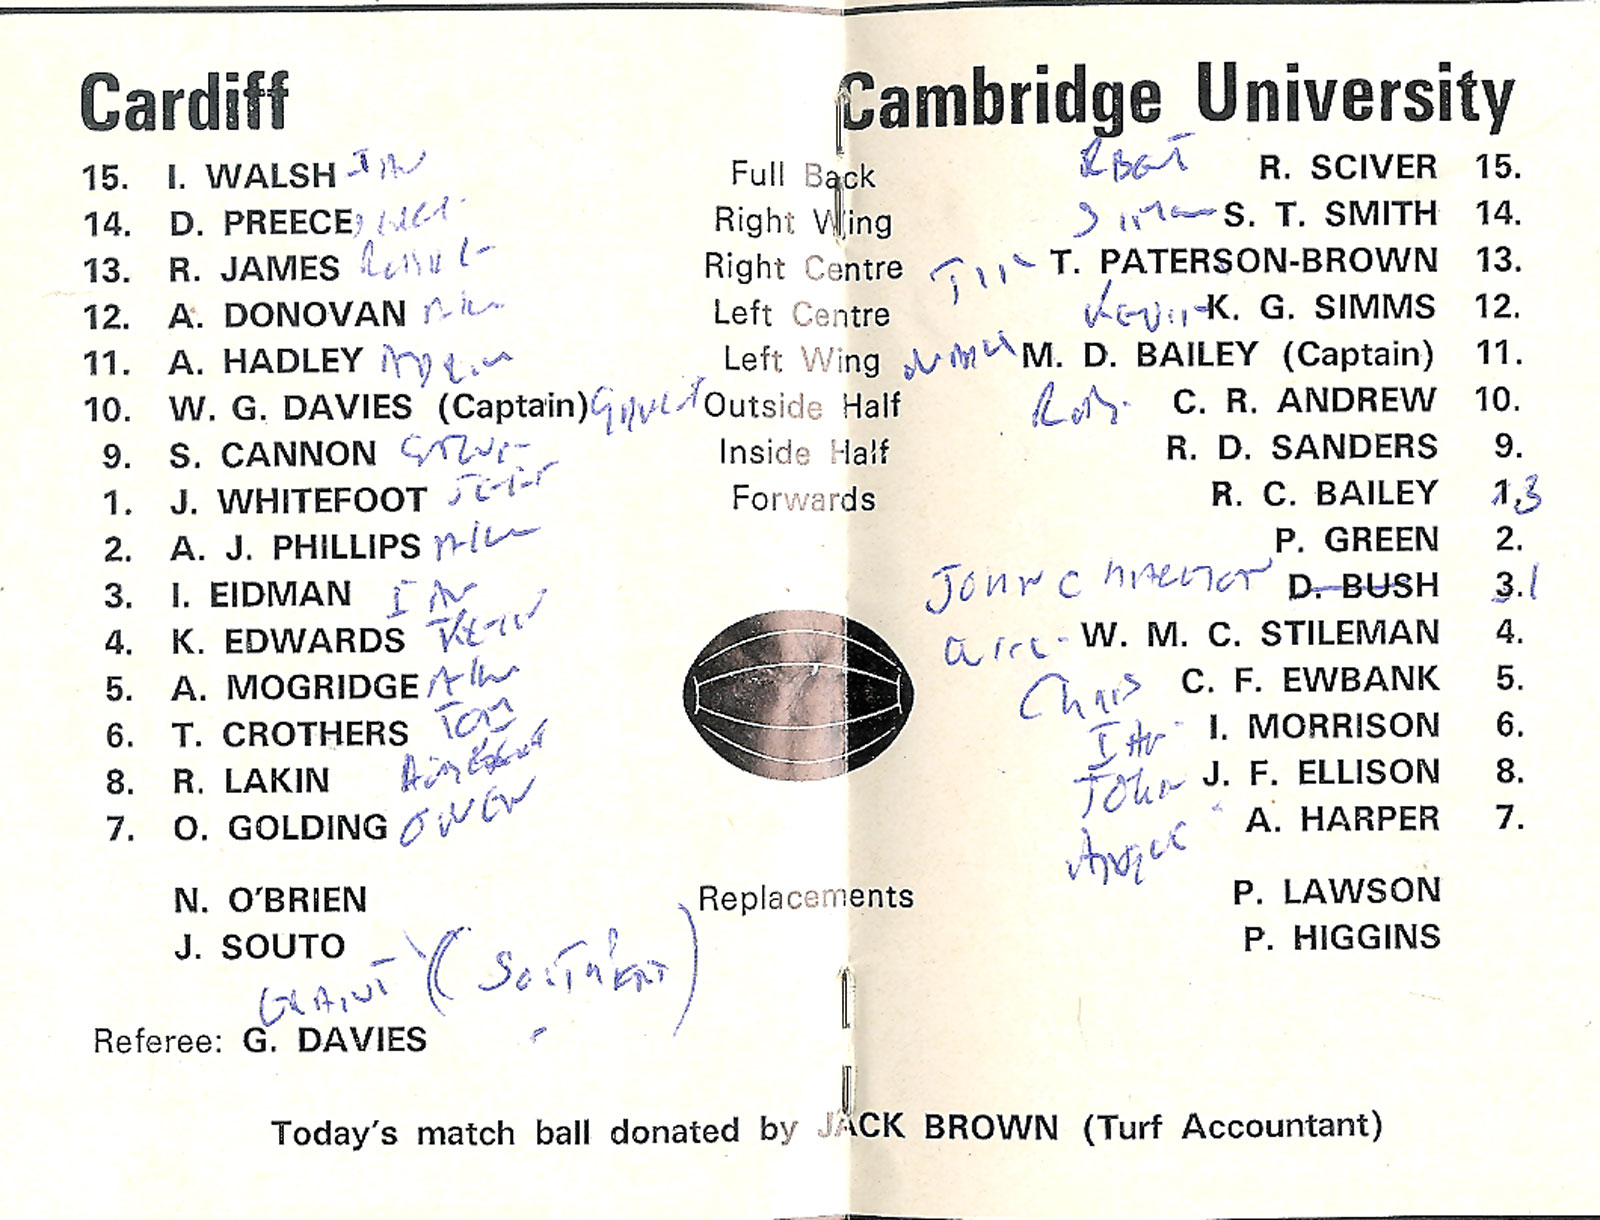 Cardiff Cambridge University
15. I. WALSH IAN Full Back R. SCIVER 15.
14. D. PREECE Right Wing SIMON S. T. SMITH 14.
13. R. JAMES Right Centre TIM T. PATERSON-BROWN 13.
12. A. DONOVAN Left Centre KEVIN K. G. SIMMS 12.
11. A. HADLEY ADRIAN Left Wing MARK M. D. BAILEY (Captain) 11.
10. W. G. DAVIES (Captain) GARETH Outside Half Rob. C. R. ANDREW 10.
9. S. CANNON STEVE Inside Half R. D. SANDERS 9.
1. J. WHITEFOOT JEFF Forwards R. C. BAILEY 1. 3
2. A. J. PHILLIPS ALUN P. GREEN 2.
3. I. EIDMAN IAN JOHN C D. BUSH 3. 1
4. K. EDWARDS KEVIN W. M. C. STILEMAN 4.
5. A. MOGRIDGE ALUN Chris C. F. EWBANK 5.
6. T. CROTHERS TOM IAN I. MORRISON 6.
8. R. LAKIN JOHN J. F. ELLISON 8.
7. O. GOLDING OWEN A. HARPER 7.
N. O'BRIEN Replacements P. LAWSON
J. SOUTO P. HIGGINS
Referee: G. DAVIES
Today's match ball donated by JACK BROWN (Turf Accountant)